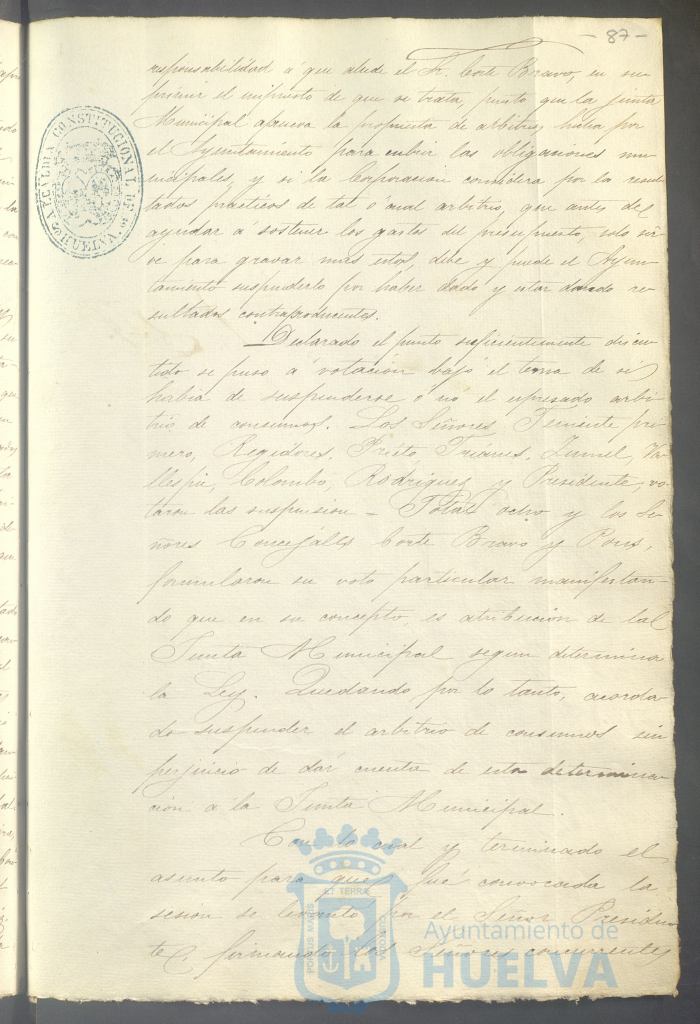 - 87 -
responsabilidad á que alude el Sr. Corte Bravo, en su-
primir el impuesto de que se trata, puesto que la junta
Municipal aprueva la propuesta de arbitrios, hecha por
el Ayuntamiento para cubrir las obligaciones mu-
nicipales, y si la Corporación considera por los resul-
tados prácticos de tal ó cual arbitrio, que antes de
ayudar á sostener los gastos del presupuesto, solo sir-
ve para gravar mas estos, debe y puede el Ayun-
tamiento suspenderlo por haber dado y estar dando re-
sultados contraproducentes.
Declarado el punto suficientemente discu-
tido se puso á votación bajo el tema de si
habia de suspenderse ó no el espresado arbi-
trio de consumos. Los Señores Teniente pri-
mero, Regidores, Prieto Trianes, Va-
llespin, Colombo, Rodriguez y Presidente, vo-
taron la suspension - Total ocho y los Se-
ñores Concejales Corte Bravo y Pons,
formularon su voto particular manifestan-
do que en su concepto, es atribución de la
Junta Municipal segun determina
la Ley. Quedando por lo tanto, acorda-
do suspender el arbitrio de consumos sin
perjuicio de dár cuenta de esta determina-
cion a la Junta Municipal.
Con lo cual y terminado el
asunto para que fué convocada la
sesion se levantó por el Señor Presiden-
te, firmando los Señores concurrentes
ALCALDIA CONSTITUCIONAL DE HUELVA.
PORTUS MARIS ET TERRÆ CUSTODIA
Ayuntamiento de
HUELVA